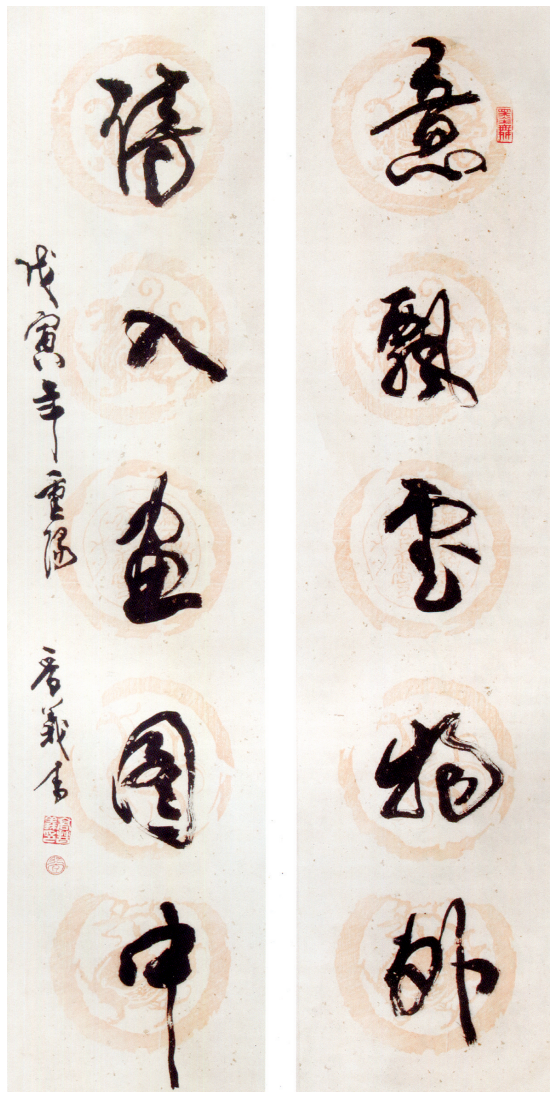 意飘云物外
诗入画图中
戊寅年重阳 晋义书